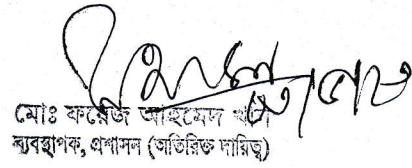 মোঃ ফয়েজ আহমেদ খান
ব্যবস্থাপক, প্রশাসন (অতিরিক্ত দায়িত্ব)